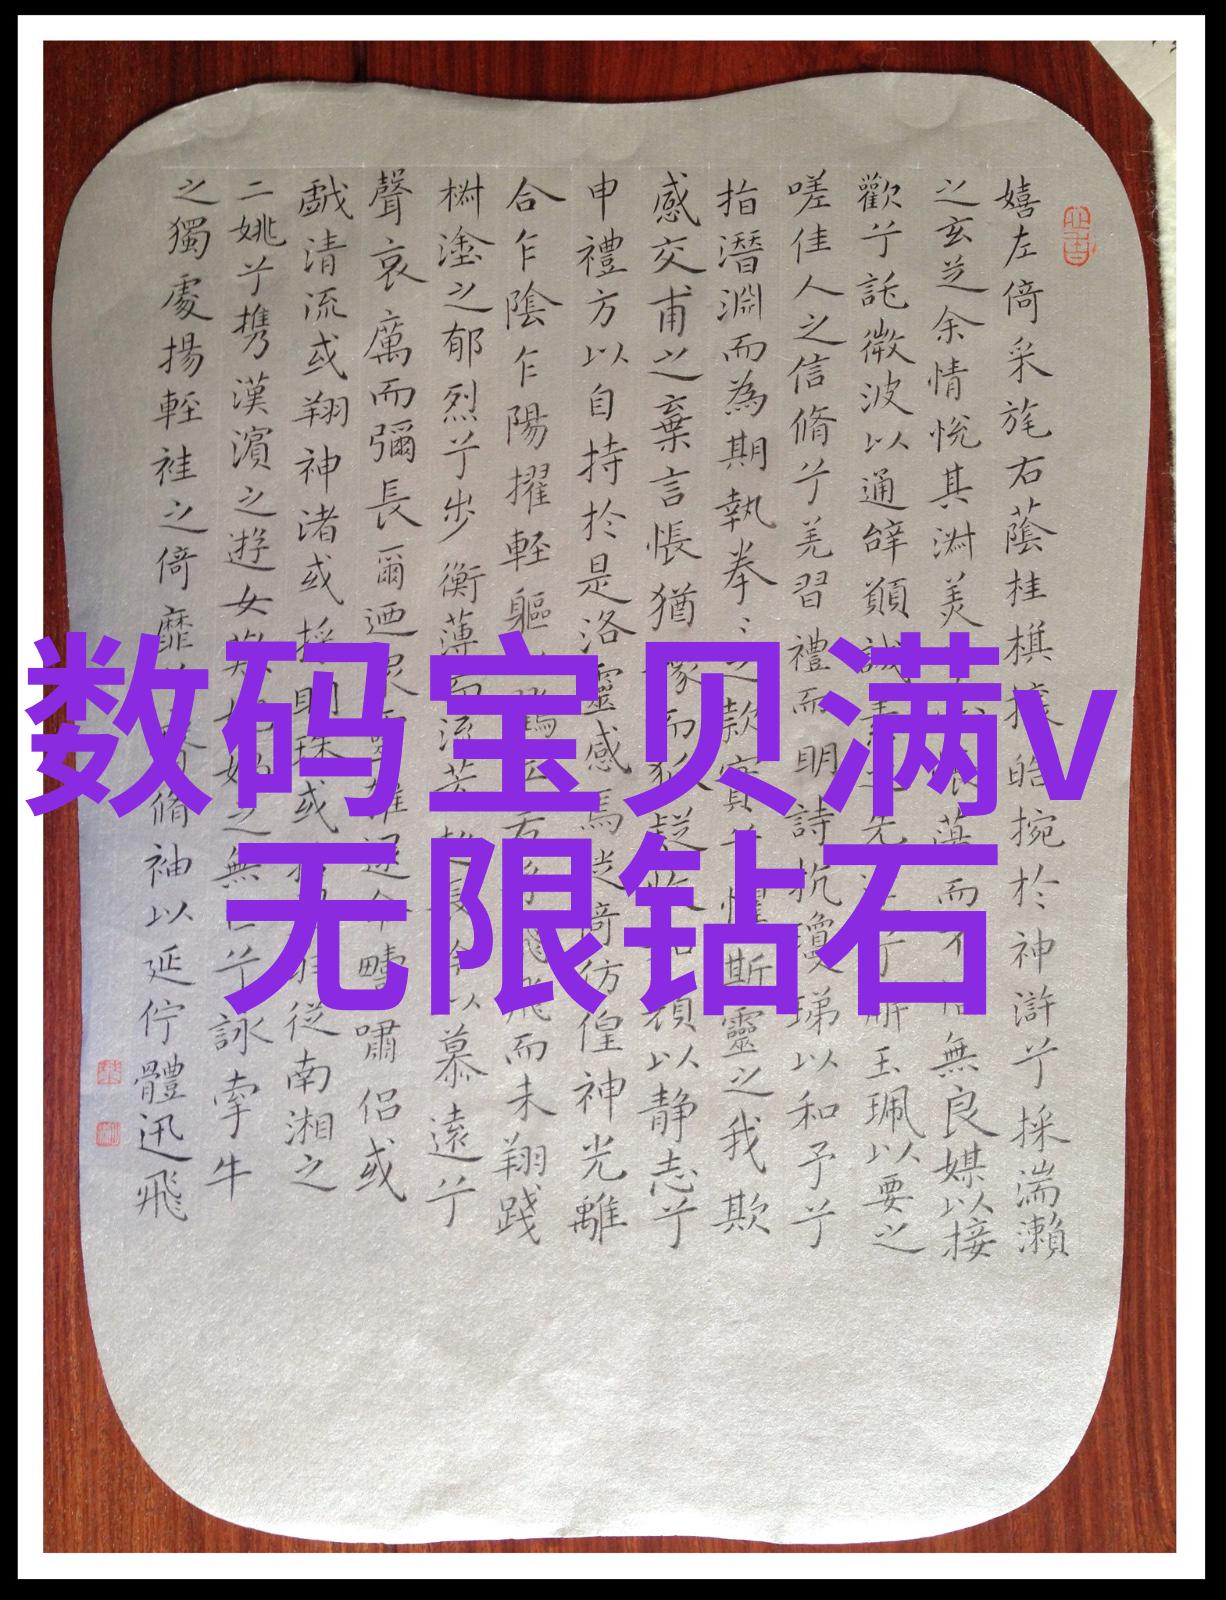 数码宝贝满v
无限钻石
嬉左倚采旄右蔭桂棋攘皓捥於神滸兮採湍瀨
之玄芝余情悅其淑美振蕩而不怡無良媒以接
歡兮託微波以通辭願誠素之先兮解玉珮以要之
嗟佳人之信脩兮羌習禮而明詩抗瓊珶以和予兮
指潛淵而為期執拳〻之款實兮懼斯靈之我欺
感交甫之棄言悵猶豫而狐疑收顏以静志兮
申禮方以自持於是洛靈感焉徙倚彷徨神光離
合乍陰乍陽擢輕軀鶴立飛而未翔踐
樹塗之郁烈兮步衡薄而流芳超長吟以慕遠兮
聲哀厲而彌長爾迺眾靈雜遝命疇嘯侶或
戲清流或翔神渚或採明珠或從南湘之
二姚兮携漢濱之遊女歎媧之無匹兮詠牽牛
之獨處揚輕袿之倚靡脩袖以延佇體迅飛